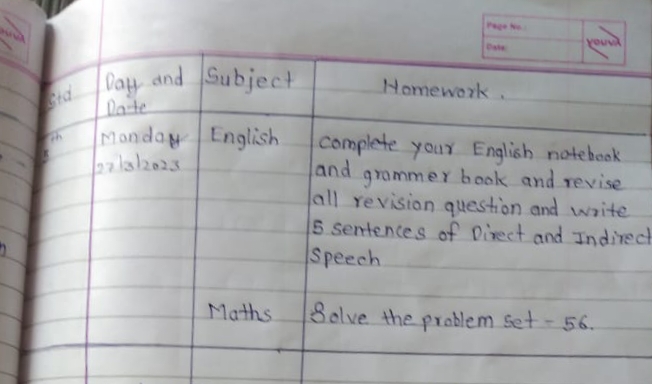 Page No.:
Date:
youva
Std Day and Date Subject Homework.
Monday English complete your English notebook
27/3/2023 and grammer book and revise
all revision question and write
5 sentences of Direct and Indirect
Speech
Maths Solve the problem set - 56.